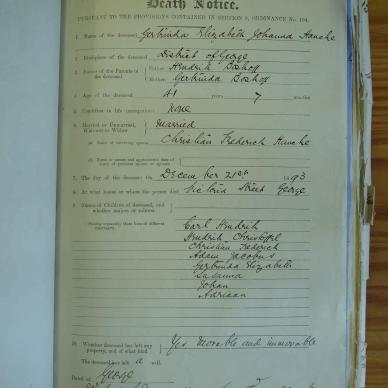 Death Notice.
PURSUANT TO THE PROVISIONS CONTAINED IN SECTION 9, ORDINANCE No. 104.
1. Name of the deceased Gertruida Elizabeth Johanna
2. Birthplace of the deceased District of George
3. Names of the Parents of the deceased Father Hendrik Boshoff
Mother Gertruida Boshoff
4. Age of the deceased 41 years 7 months
5. Condition in life (occupation) None
6. Married or Unmarried, Widower or Widow Married
(a) Name of surviving spouse Christian Frederich
(b) Name or names and approximate date of death of previous spouse or spouses
7. The day of the decease (on) December 21st 1893
8. At what house or where the person died Victoria Street George
9. Names of Children of deceased, and whether majors or minors
(Stating separately those born of different marriages)
Carl Hendrik
Hendrik Christoffel
Christian Frederich
Adam Jacobus
Gertruida Elizabeth
Susanna
Johan
Adriaan
10. Whether deceased has left any property, and of what kind Yes movable and immovable
The deceased has left a will.
Dated at George